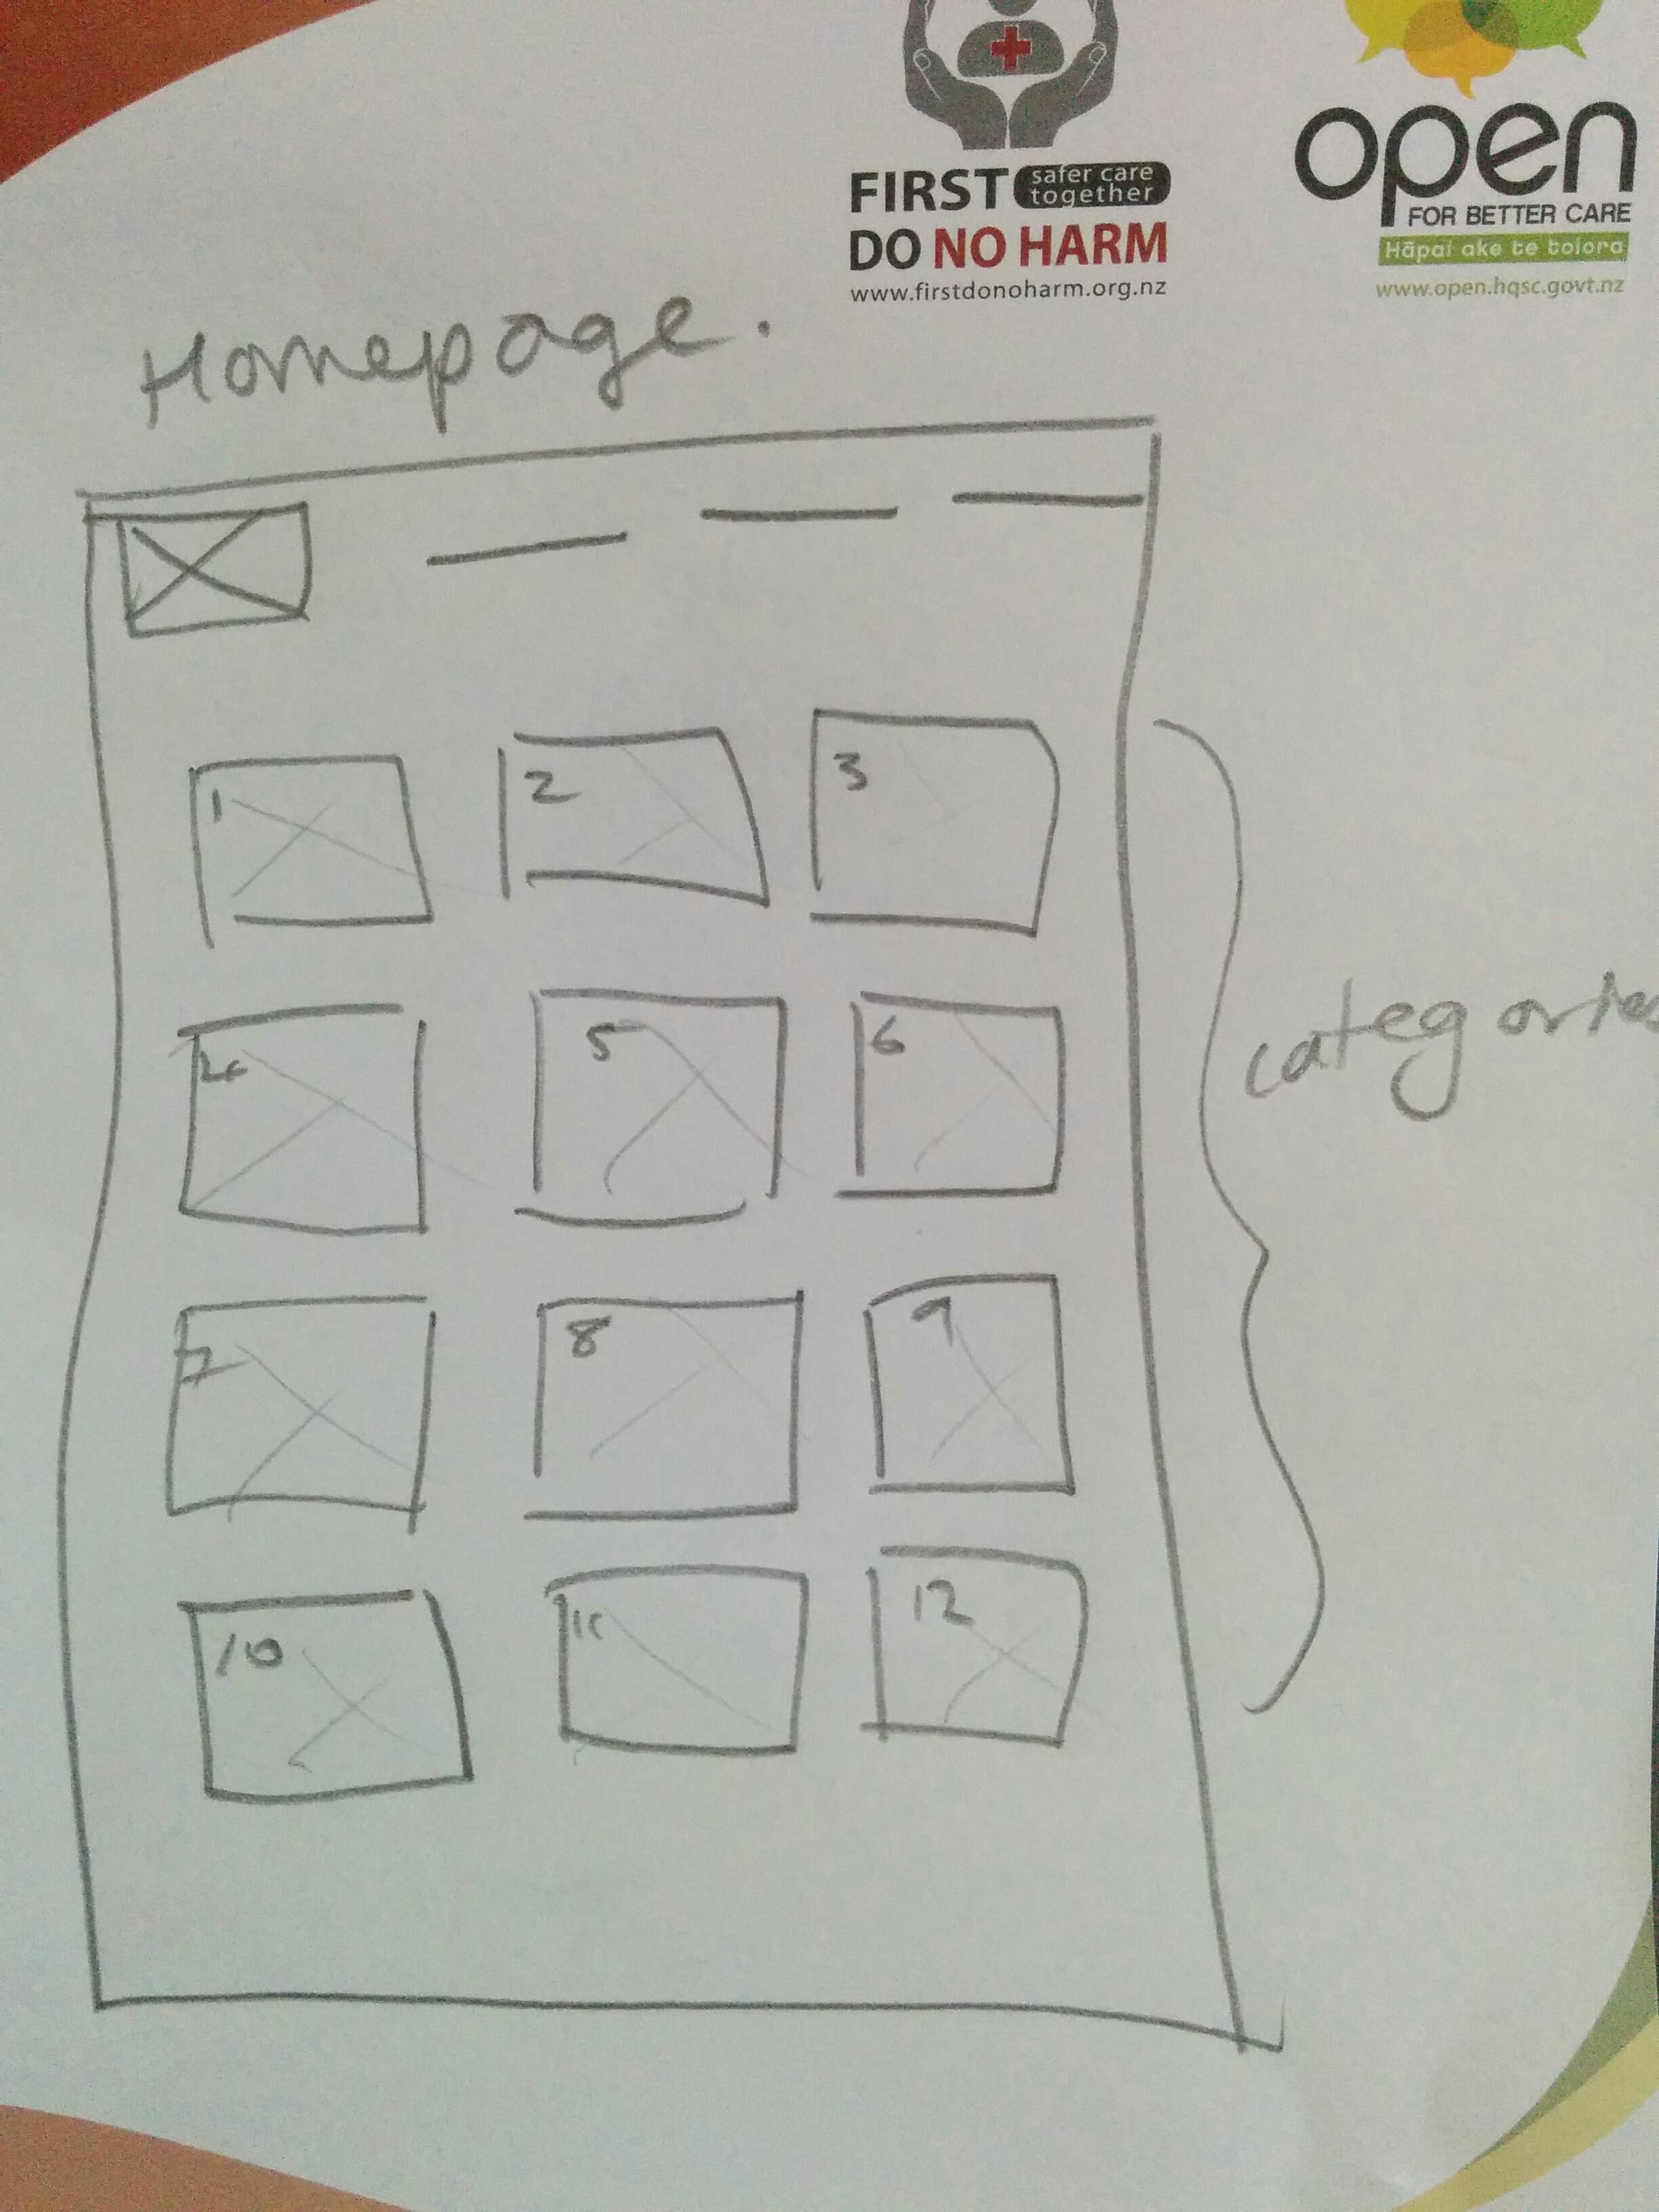 FIRST safer care together
DO NO HARM
www.firstdonoharm.org.nz
open
FOR BETTER CARE
Hāpai ake te toiora
www.open.hqsc.govt.nz
Homepage.
1 2 3
4 5 6
categories
7 8 9
10 11 12